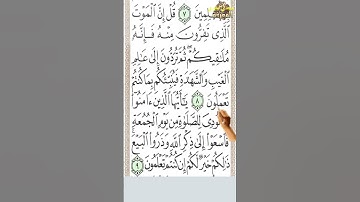 ـلِمِينَ ٧ قُلْ إِنَّ الْمَوْتَ
الَّذِي تَفِرُّونَ مِنْهُ فَإِنَّهُ
مُلَاقِيكُمْ ثُمَّ تُرَدُّونَ إِلَى عَالِمِ
الْغَيْبِ وَالشَّهَادَةِ فَيُنَبِّئُكُمْ بِمَا كُنْتُمْ
تَعْمَلُونَ ٨ يَا أَيُّهَا الَّذِينَ ءَامَنُوا
نُودِيَ لِلصَّلَاةِ مِنْ يَوْمِ الْجُمُعَةِ
فَاسْعَوْا إِلَى ذِكْرِ اللَّهِ وَذَرُوا الْبَيْعَ
ذَلِكُمْ خَيْرٌ لَكُمْ إِنْ كُنْتُمْ تَعْلَمُونَ ٩